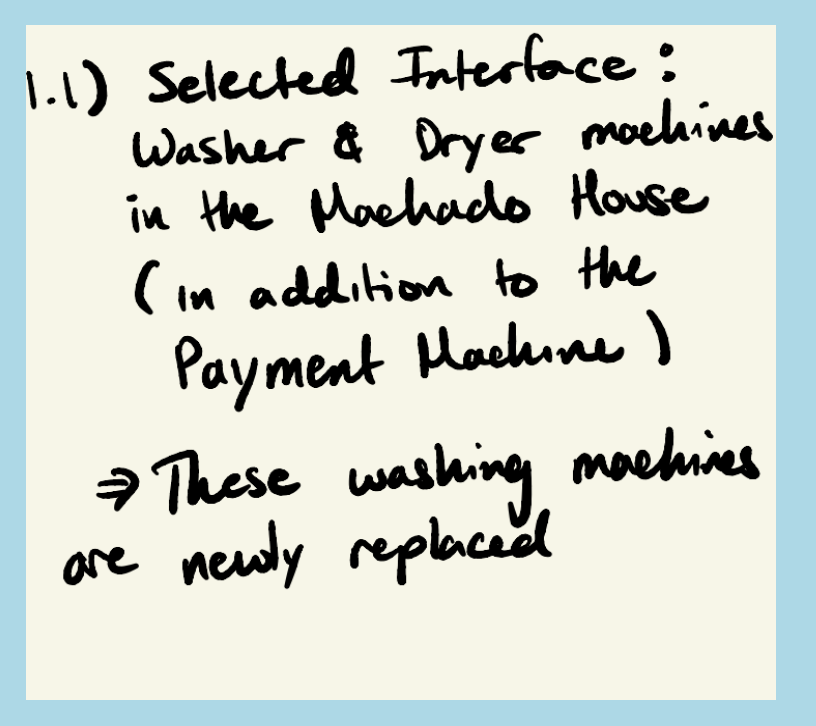 1.1) Selected Interface:
Washer & Dryer machines
in the Machado House
(in addition to the
Payment Machine)
⇒ These washing machines
are newly replaced